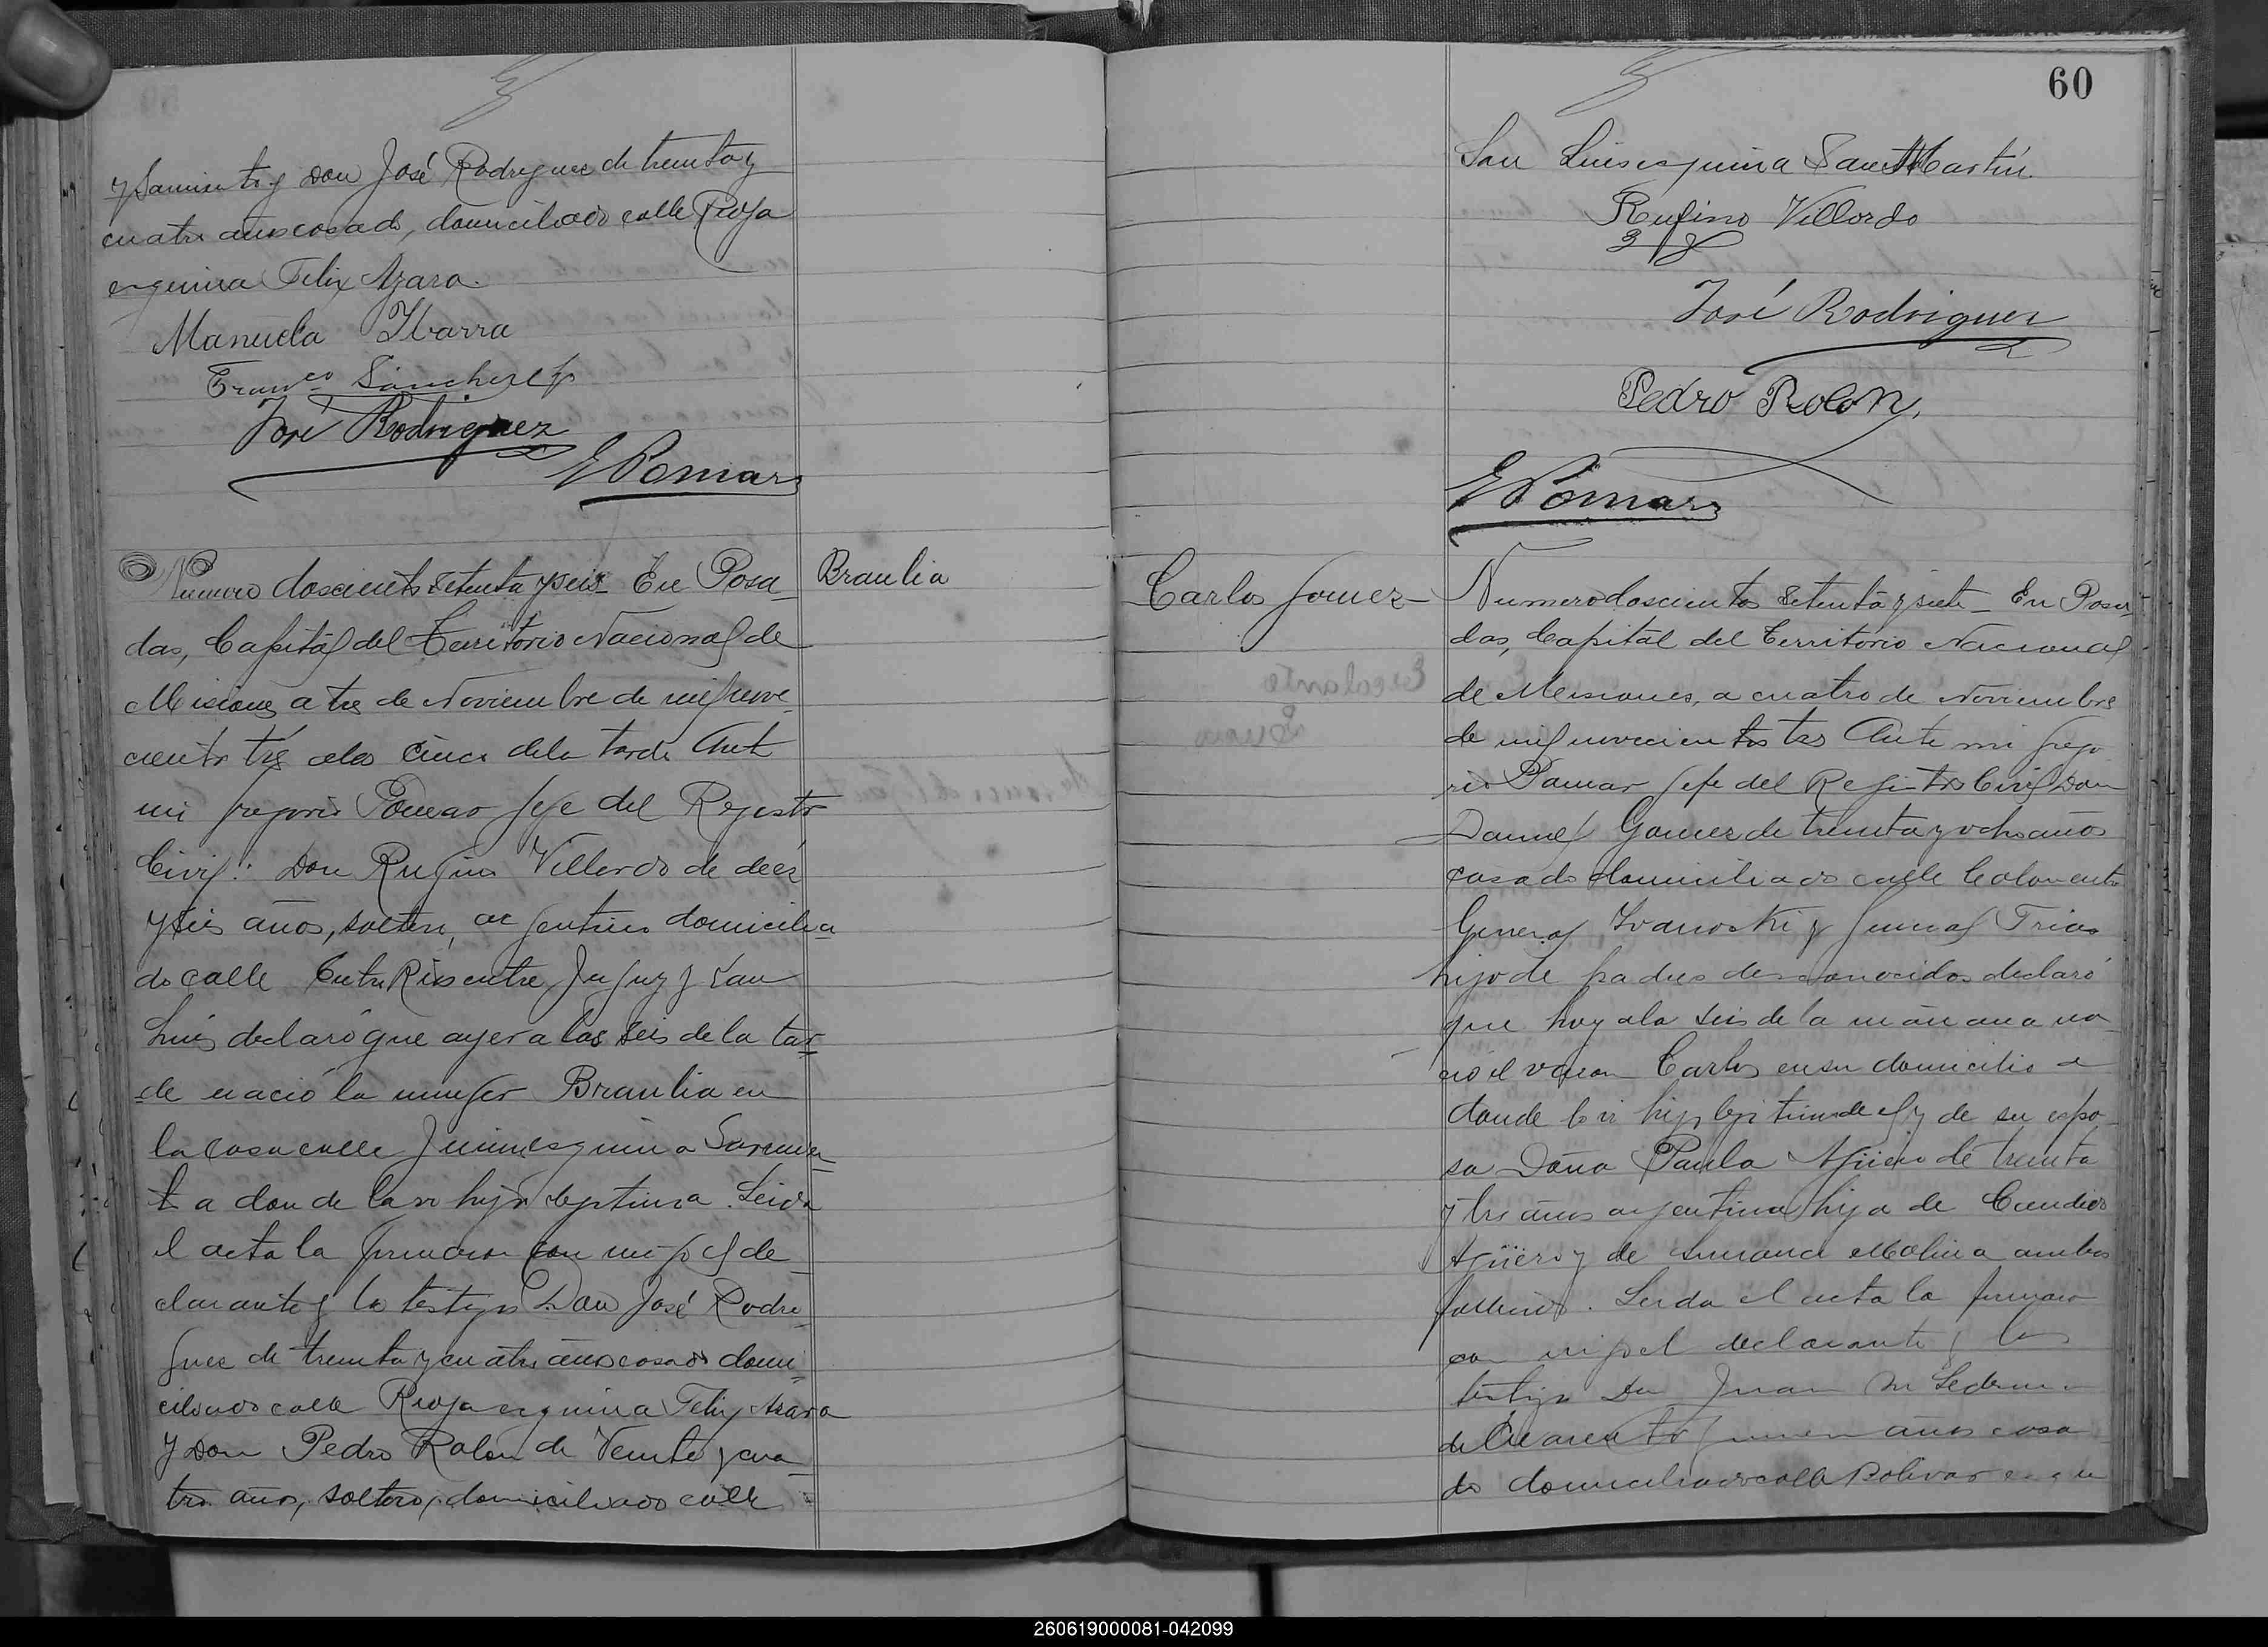 y Sarmiento y Don José Rodriguez de treinta y
cuatro años casado, domiciliado calle Rioja
esquina Felix Azara.
Manuela Ybarra
Franco Sanchez
José Rodriguez
G Pomar
Numero doscientos setenta y seis En Posa
das, Capital del Territorio Nacional de
Misiones a tres de Noviembre de mil nove
cientos tres a las cinco de la tarde Ante
mi Gregorio Pomar Jefe del Registro
Civil: Don Rufino Villordo de diez
y seis años, soltero, argentino domicilia
do calle Entre Rios entre Jujuy y San
Luis declaró que ayer a las seis de la tar
de nació la mujer Braulia en
la casa calle Junin esquina Sarmien
to a donde la vi hija legitima. Leida
el acta la firmaron con migo el de
clarante y los testigos Don José Rodri
guez de treinta y cuatro años casado domi
ciliado calle Rioja esquina Felix Azara
y Don Pedro Rolon de Veinte y cua
tro años, soltero, domiciliado calle
Braulia
60
San Luis esquina San Martin.
Rufino Villordo
José Rodriguez
Pedro Rolon,
G Pomar
Carlos Gomez
Numero doscientos setenta y siete En Posa
das, Capital del Territorio Nacional
de Misiones, a cuatro de Noviembre
de mil novecientos tres Ante mi Grego
rio Pomar Jefe del Registro Civil Don
Daniel Gomez de treinta y ocho años
casado domiciliado calle Colon entre
General Ivanoski y General Frias
hijo de padres desconocidos declaró
que hoy a la seis de la mañana na
ció el varon Carlos en su domicilio a
donde lo vi hijo legitimo de el y de su espo
sa Doña Paula Agüero de treinta
y tres años argentina hija de Candido
Agüero y de Molina ambos
fallecidos. Leida el acta la firmaron
con migo el declarante y los
testigos Don Juan M Ledesma
de Cuarenta y años casa
do domiciliado calle Bolivar esqui
260619000081-042099